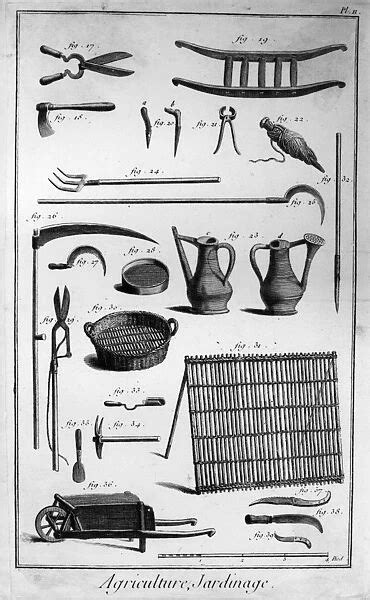 Pl. II.
fig. 17.
fig. 19
fig. 18.
a
b
fig. 20.
fig. 21.
fig. 22.
fig. 24
fig. 32.
fig. 25
fig. 26
c
fig. 23.
d
fig. 27.
fig. 28
fig. 29.
fig. 30.
fig. 31.
fig. 33
fig. 35
fig. 34
fig. 36
fig. 37
fig. 38.
fig. 39
1
2
3
4 Pieds
Agriculture, Jardinage.